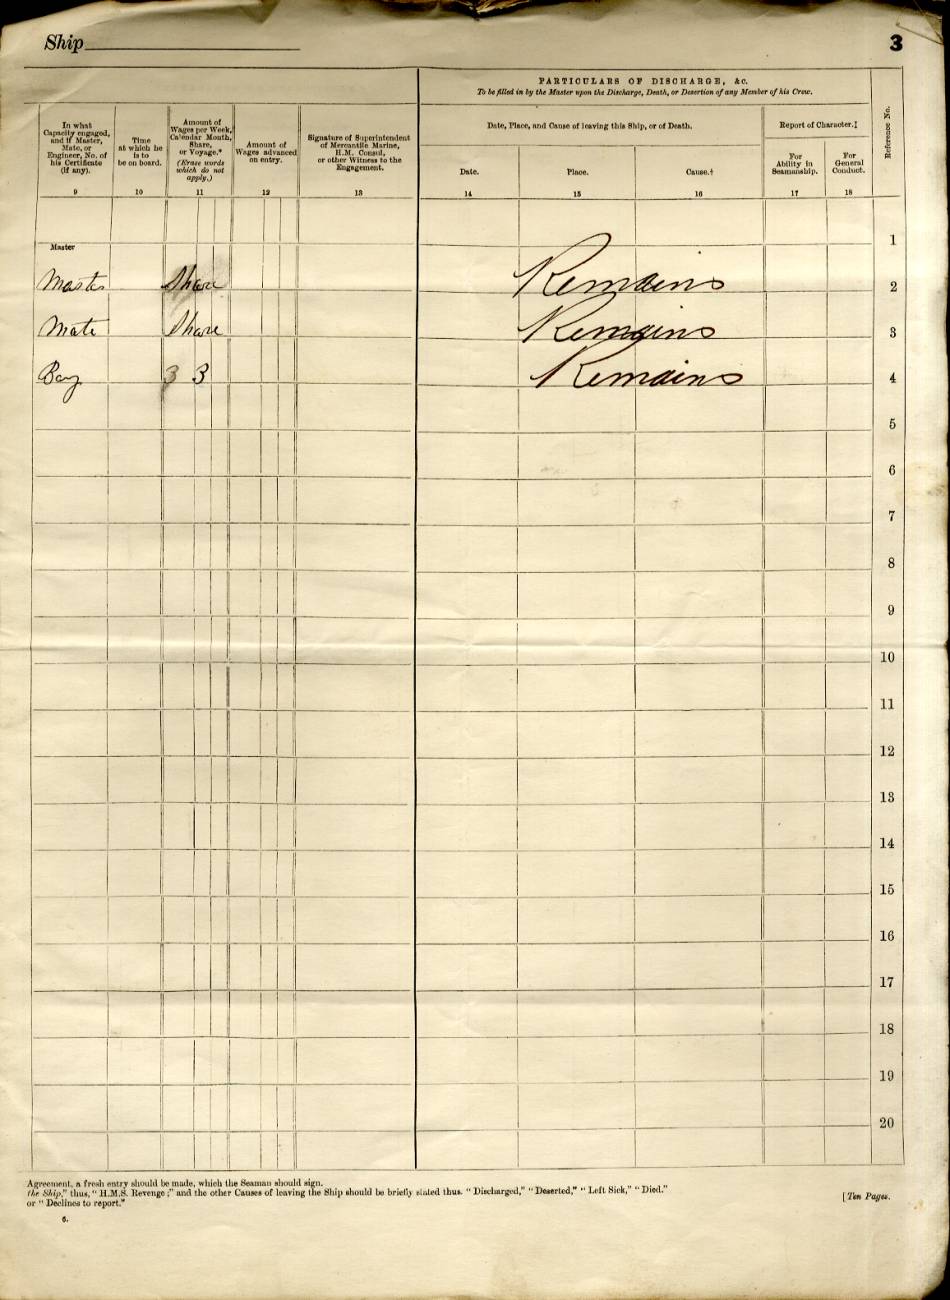 Ship 3
PARTICULARS OF DISCHARGE, &c.
To be filled in by the Master upon the Discharge, Death, or Desertion of any Member of his Crew.
In what
Capacity engaged,
and if Master,
Mate, or
Engineer, No. of
his Certificate
(if any).
9
Time
at which he
is to
be on board.
10
Amount of
Wages per Week,
Calendar Month,
Share,
or Voyage.*
(Erase words
which do not
apply.)
11
Amount of
Wages advanced
on entry.
12
Signature of Superintendent
of Mercantile Marine,
H.M. Consul,
or other Witness to the
Engagement.
13
Date, Place, and Cause of leaving this Ship, or of Death.
Date.
14
Place.
15
Cause.†
16
Report of Character.‡
For
Ability in
Seamanship.
17
For
General
Conduct.
18
Reference No.
Master
1
Master Share Remains 2
Mate Share Remains 3
Boy 3 3 Remains 4
5
6
7
8
9
10
11
12
13
14
15
16
17
18
19
20
Agreement, a fresh entry should be made, which the Seaman should sign.
the Ship," thus, "H.M.S. Revenge;" and the other Causes of leaving the Ship should be briefly stated thus. "Discharged," "Deserted," "Left Sick," "Died."
or "Declines to report."
[Ten Pages.
6.